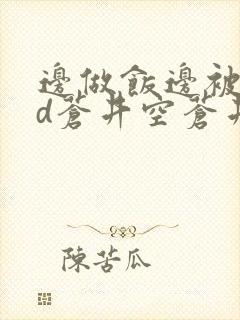 邊做飯邊被
d蒼井空蒼井
陳苦瓜